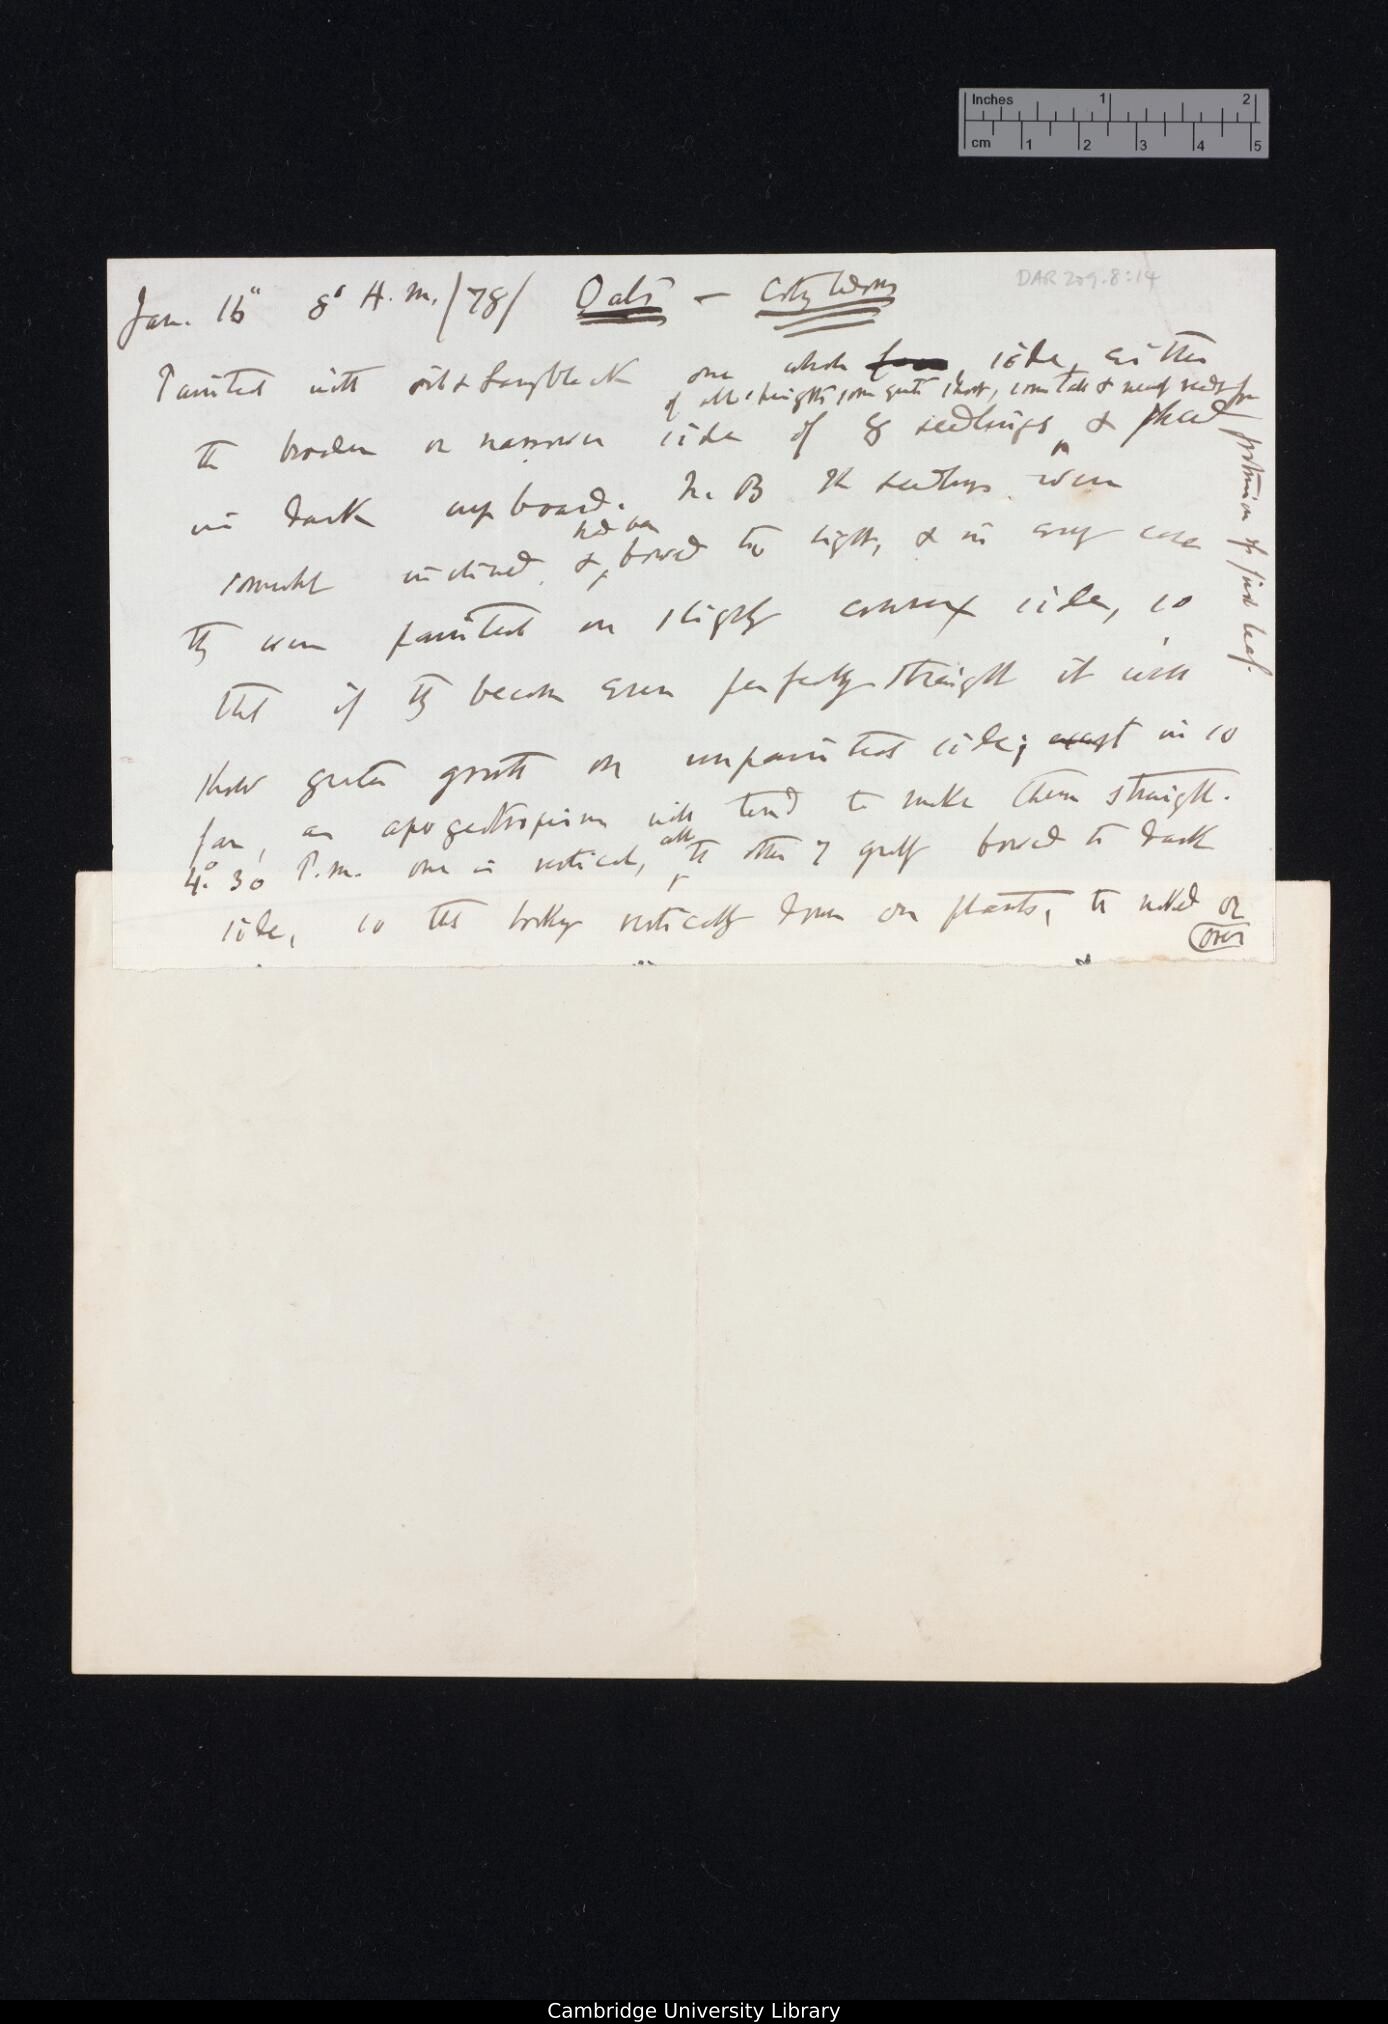 Inches 1 2
cm 1 2 3 4 5
DAR 209.8:14
Jan. 16" 8° A.M. /78/ Oats — Cotyledons
Painted with oil & Lampblack one whole side, either
of all heights, some quite short, some tall & nearly ready for
protrusion of first leaf.
the broader or narrower side of 8 seedlings & placed
in dark cupboard. N.B. The seedlings were
somewhat inclined &
bowed to light, & in every case
they were painted on slightly convex side, so
that if they become even perfectly straight it will
show greater growth on unpainted side; except in so
far, as apogeotropism will tend to make them straight.
4° 30' P.M. one is vertical, all the other 7 greatly bowed to dark
side, so that looking vertically down on plants, the naked or
(over)
Cambridge University Library